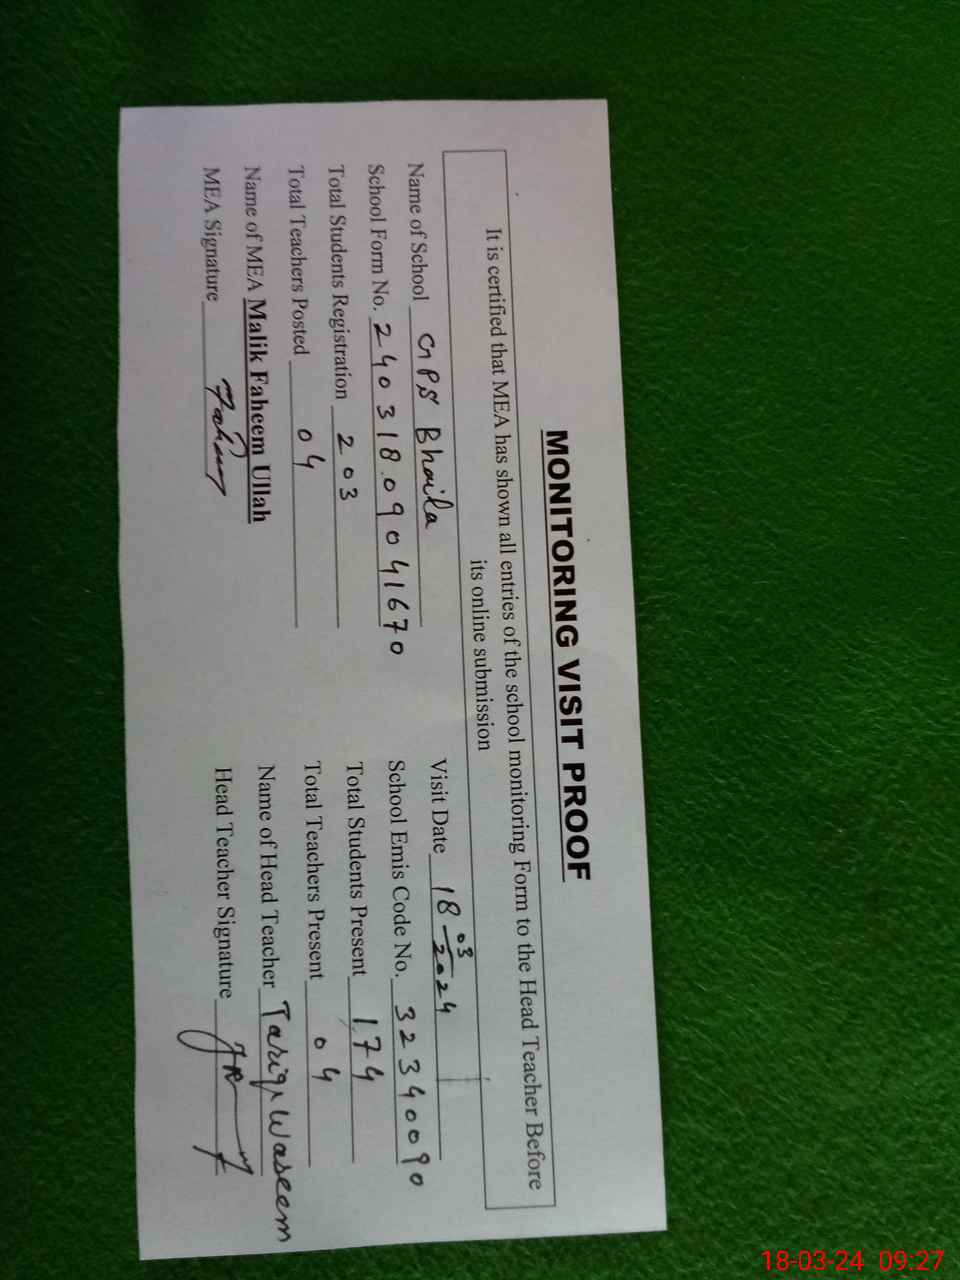 MONITORING VISIT PROOF
It is certified that MEA has shown all entries of the school monitoring Form to the Head Teacher Before
its online submission
Name of School GPS Bhaila
Visit Date 18 03/2024
School Form No. 240318.09041670
School Emis Code No. 32340090
Total Students Registration 203
Total Students Present 174
Total Teachers Posted 04
Total Teachers Present 04
Name of MEA Malik Faheem Ullah
Name of Head Teacher Tariq Waseem
MEA Signature Fahim
Head Teacher Signature
18-03-24 09:27